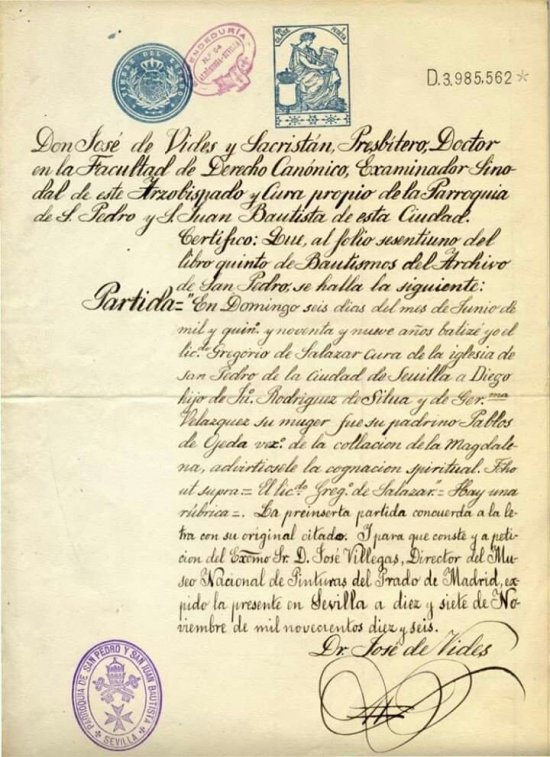 TIMBRE DEL ESTADO
EXPENDEDURÍA
Nº 54
D.3,985,562*
Don José de Vides y Sacristán, Presbítero, Doctor
en la Facultad de Derecho Canónico, Examinador Sino-
dal de este Arzobispado y Cura propio de la Parroquia
de S. Pedro y S. Juan Bautista de esta Ciudad.
Certifico: Que, al folio sesentiuno del
libro quinto de Bautismos del Archivo
de San Pedro, se halla la siguiente:
Partida= "En Domingo seis dias del mes de Junio de
mil y quin.s y noventa y nueve años batizé yo el
lic.do Gregório de Salazar Cura de la iglesia de
san Pedro de la Ciudad de Seuilla a Diego
hijo de Ju.º Rodriguez de Silua y de Ger.ma
Velazquez su muger fue su padrino Pablos
de Ojeda vez.º de la collacion de la Magdale-
na, aduirtiosele la cognacion spiritual. Fho
ut supra= El lic.do Greg.º de Salazar."= Hay una
rúbrica=. La preinserta partida concuerda a la le-
tra con su original citado. I para que conste y a peti-
cion del Excmo Sr. D. José Villegas, Director del Mu-
seo Nacional de Pinturas del Prado de Madrid, ex-
pido la presente en Sevilla a diez y siete de No-
viembre de mil novecientos diez y seis.
Dr. José de Vides
PARROQUIA DE SAN PEDRO Y SAN JUAN BAUTISTA
SEVILLA